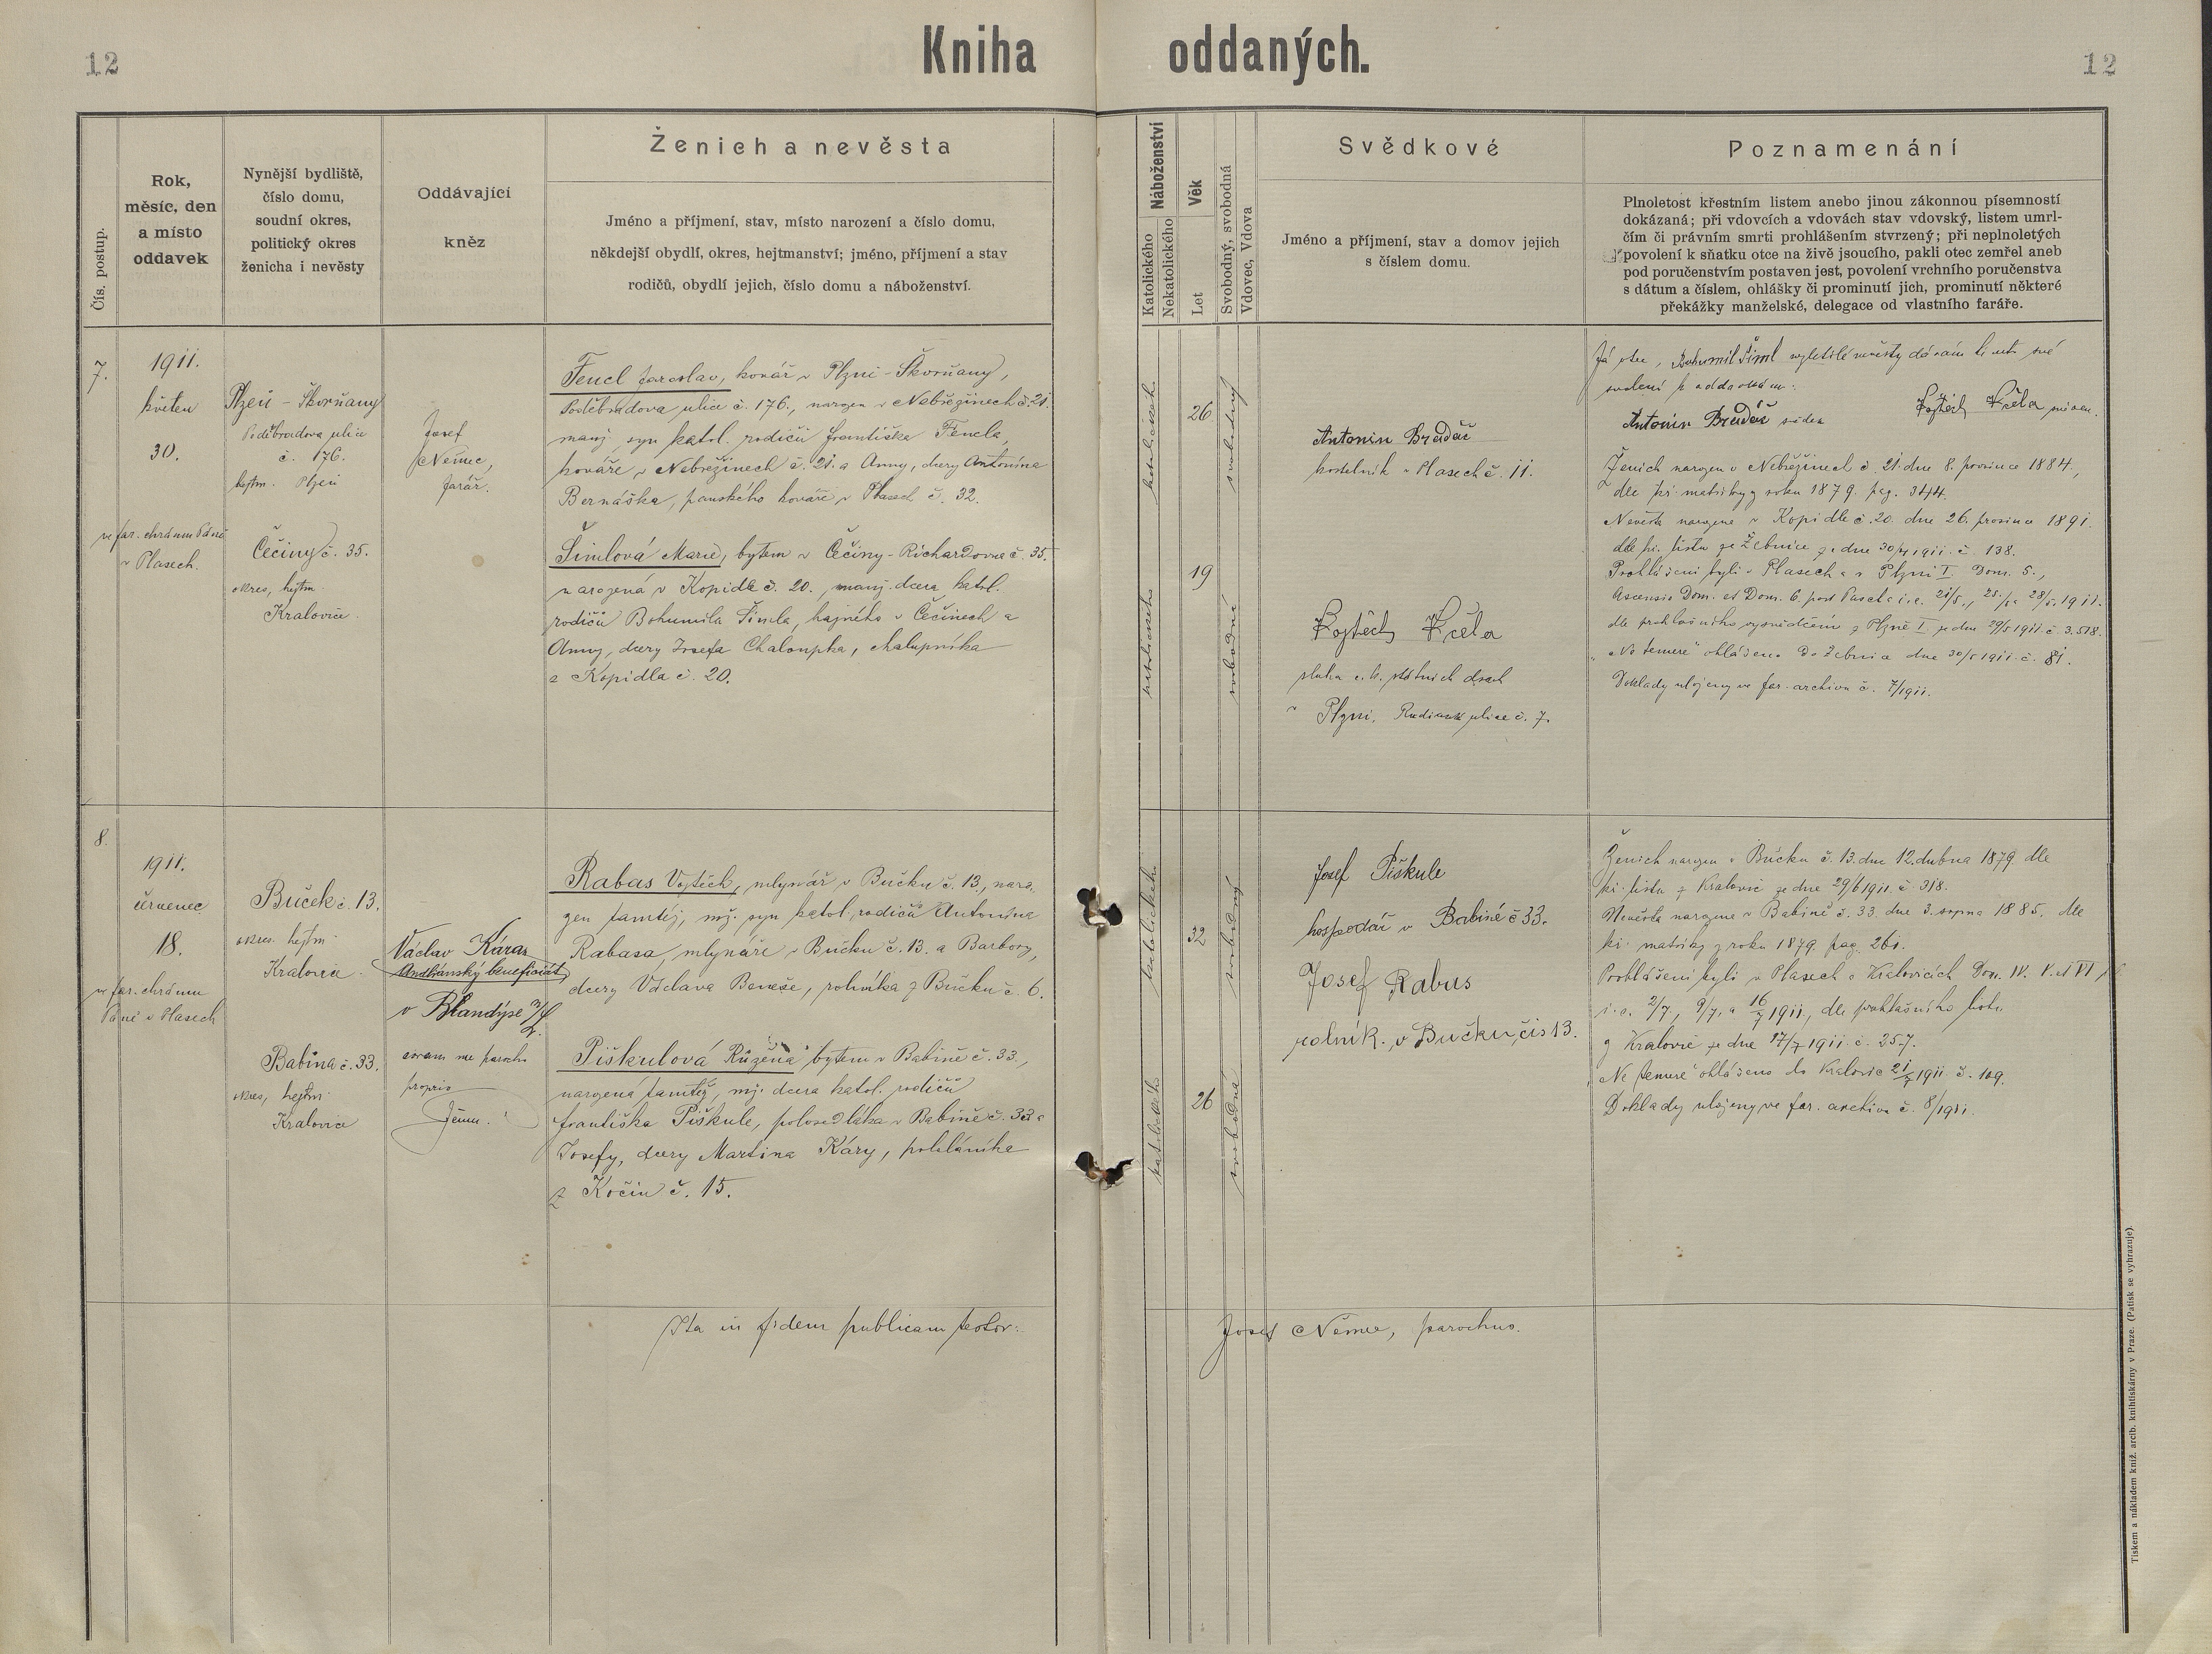 12
Kniha oddaných.
12
Čís. postup.
Rok,
měsíc, den
a místo
oddavek
Nynější bydliště,
číslo domu,
soudní okres,
politický okres
ženicha i nevěsty
Oddávající
kněz
Ženich a nevěsta
Jméno a příjmení, stav, místo narození a číslo domu,
někdejší obydlí, okres, hejtmanství; jméno, příjmení a stav
rodičů, obydlí jejich, číslo domu a náboženství.
Náboženství
Katolického
Nekatolického
Věk
Let
Svobodný, svobodná
Vdovec, Vdova
Svědkové
Jméno a příjmení, stav a domov jejich
s číslem domu.
Poznamenání
Plnoletost křestním listem anebo jinou zákonnou písemností
dokázaná; při vdovcích a vdovách stav vdovský, listem umrl-
čím či právním smrti prohlášením stvrzený; při neplnoletých
povolení k sňatku otce na živě jsoucího, pakli otec zemřel aneb
pod poručenstvím postaven jest, povolení vrchního poručenstva
s dátum a číslem, ohlášky či prominutí jich, prominutí některé
překážky manželské, delegace od vlastního faráře.
7.
1911.
květen
30.
ve far. chrámu Páně
v Plasech.
Plzeň - Škorňany
Poděbradova ulice
č. 176.
hejtm. Plzeň
Čečiny č. 35.
okres, hejtm.
Kralovice
Josef
Němec,
farář.
Fencl Jaroslav, kovář v Plzni - Škorňany,
Poděbradova ulice č. 176., narozen v Nebřezinech č. 21.
manž. syn katol. rodičů Františka Fencla,
kováře v Nebřezinech č. 21. a Anny, dcery Antonína
Bernáška, panského kováře v Plasech č. 32.
Šimlová Marie, bytem v Čečiny - Richardovna č. 35.
narozená v Kopidle č. 20., manž. dcera katol.
rodičů Bohumila Šimla, hajného v Čečinech a
Anny, dcery Josefa Chaloupka, chalupníka
z Kopidla č. 20.
katolického
26
svobodný
katolického
19
svobodná
Antonín Bradáč
kostelník v Plasech č. 11.
Vojtěch Květa
sluha c. k. státních drah
v Plzni, ulice č. 7.
Já otec, Bohumil Šiml nevěsty dávám tímto své
svolení k oddavkám:
Antonín Bradáč svědek
Vojtěch Květa
Ženich narozen v Nebřezinech č. 21. dne 8. prosince 1884.,
dle kř. matriky z roku 1879. pag. 344.
Nevěsta narozena v Kopidle č. 20. dne 26. prosince 1891.
dle kř. listu ze Žebnice ze dne 30/4 1911. č. 138.
Prohlášeni byli v Plasech a v Plzni I. Dom. 5.,
Ascensio Dom. et Dom. 6. post Pascha i. e. 21/5., 25./5. a 28/5. 1911.
dle prohlašního vysvědčení z Plzně I. ze dne 29/5 1911. č. 3.518.
"Ne temere" ohlášeno do Žebnice dne 30/5 1911. č. 81.
Doklady uloženy ve far. archivu č. 7/1911.
8.
1911.
červenec
18.
ve far. chrámu
Páně v Plasech
Buček č. 13.
okres. hejtm.
Kralovice
Babina č. 33.
okres, hejtm.
Kralovice
Václav Káras
beneficiát
v Brandýse n/L.
coram me parocho
proprio
Rabas Vojtěch, mlynář v Bučku č. 13., naro-
zen tamtéž, mž. syn katol. rodičů Antonína
Rabasa, mlynáře v Bučku č. 13. a Barbory,
dcery Václava Beneše, rolníka z Bučku č. 6.
Piškulová Růžena bytem v Babině č. 33.,
narozená tamtéž, mž. dcera katol. rodičů
Františka Piškule, polosedláka v Babině č. 33 a
Josefy, dcery Martina Káry, pohlavníka
z Kočin č. 15.
katolického
32
svobodný
katolického
26
svobodná
Josef Piškule
hospodář v Babině č 33.
Josef Rabas
rolník. v Bučku, čís 13.
Ženich narozen v Bučku č. 13. dne 12. dubna 1879. dle
kř. listu z Kralovic ze dne 29/6 1911. č. 318.
Nevěsta narozena v Babině č. 33. dne 3. srpna 1885. dle
kř. matriky z roku 1879. pag. 261.
Prohlášeni byli v Plasech a Kralovicích Dom. IV. V. et VI
i. e. 2/7., 9/7., a 16/7 1911., dle prohlašního listu
z Kralovic ze dne 17/7 1911. č. 257.
"Ne temere" ohlášeno do Kralovic 21/7 1911. č. 109.
Doklady uloženy ve far. archivu č. 8/1911.
Ita in fidem publicam testor:
Josef Němec, parochus.
Tiskem a nákladem kníž. arcib. knihtiskárny v Praze. (Patisk se vyhrazuje)